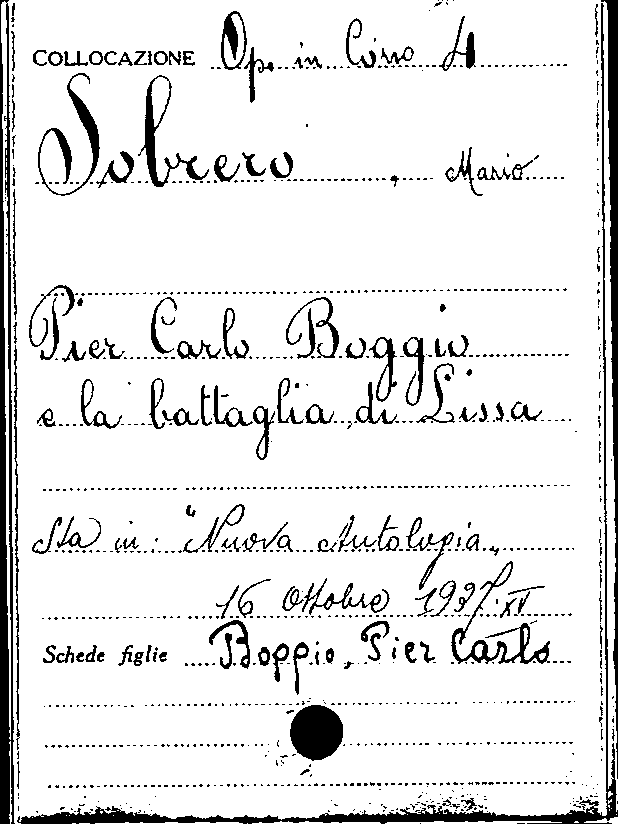 COLLOCAZIONE Op. in Corso 4
Sobrero, Mario
Pier Carlo Boggio
e la battaglia di Lissa
Sta in: "Nuova Antologia„
16 Ottobre 1937.XV
Schede figlie Boggio, Pier Carlo